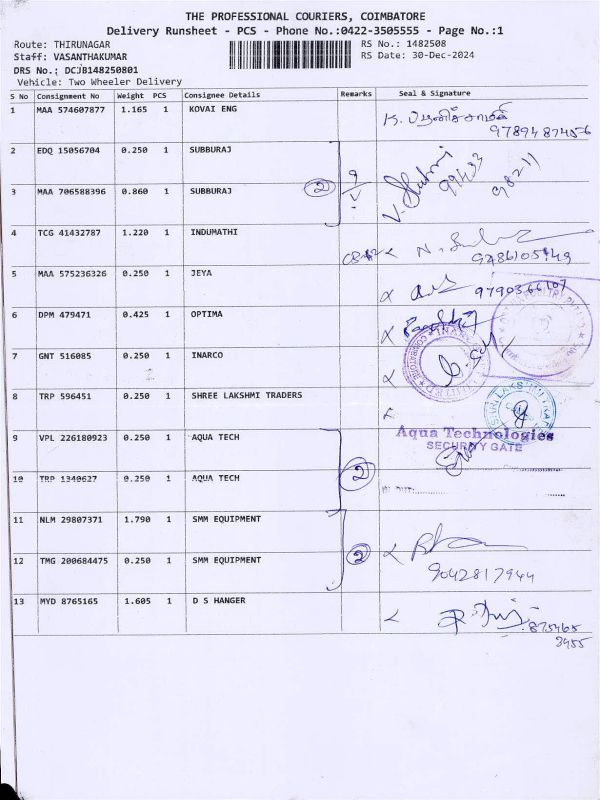 THE PROFESSIONAL COURIERS, COIMBATORE
Delivery Runsheet - PCS - Phone No.:0422-3505555 - Page No.:1
Route: THIRUNAGAR RS No.: 1482508
Staff: VASANTHAKUMAR RS Date: 30-Dec-2024
DRS No.: DCJB148250801
Vehicle: Two Wheeler Delivery
S No Consignment No Weight PCS Consignee Details Remarks Seal & Signature
1 MAA 574607877 1.165 1 KOVAI ENG
9789487456
2 EDQ 15056704 0.250 1 SUBBURAJ
99433 98211
3 MAA 706588396 0.860 1 SUBBURAJ 2
4 TCG 41432787 1.220 1 INDUMATHI
9786105149
5 MAA 575236326 0.250 1 JEYA
9790366107
6 DPM 479471 0.425 1 OPTIMA
7 GNT 516085 0.250 1 INARCO
8 TRP 596451 0.250 1 SHREE LAKSHMI TRADERS
9 VPL 226180923 0.250 1 AQUA TECH
Aqua Technologies
SECURITY GATE
10 TRP 1340627 0.250 1 AQUA TECH 2
11 NLM 29807371 1.790 1 SMM EQUIPMENT
12 TMG 200684475 0.250 1 SMM EQUIPMENT 2
9042817944
13 MYD 8765165 1.605 1 D S HANGER
875465
3455